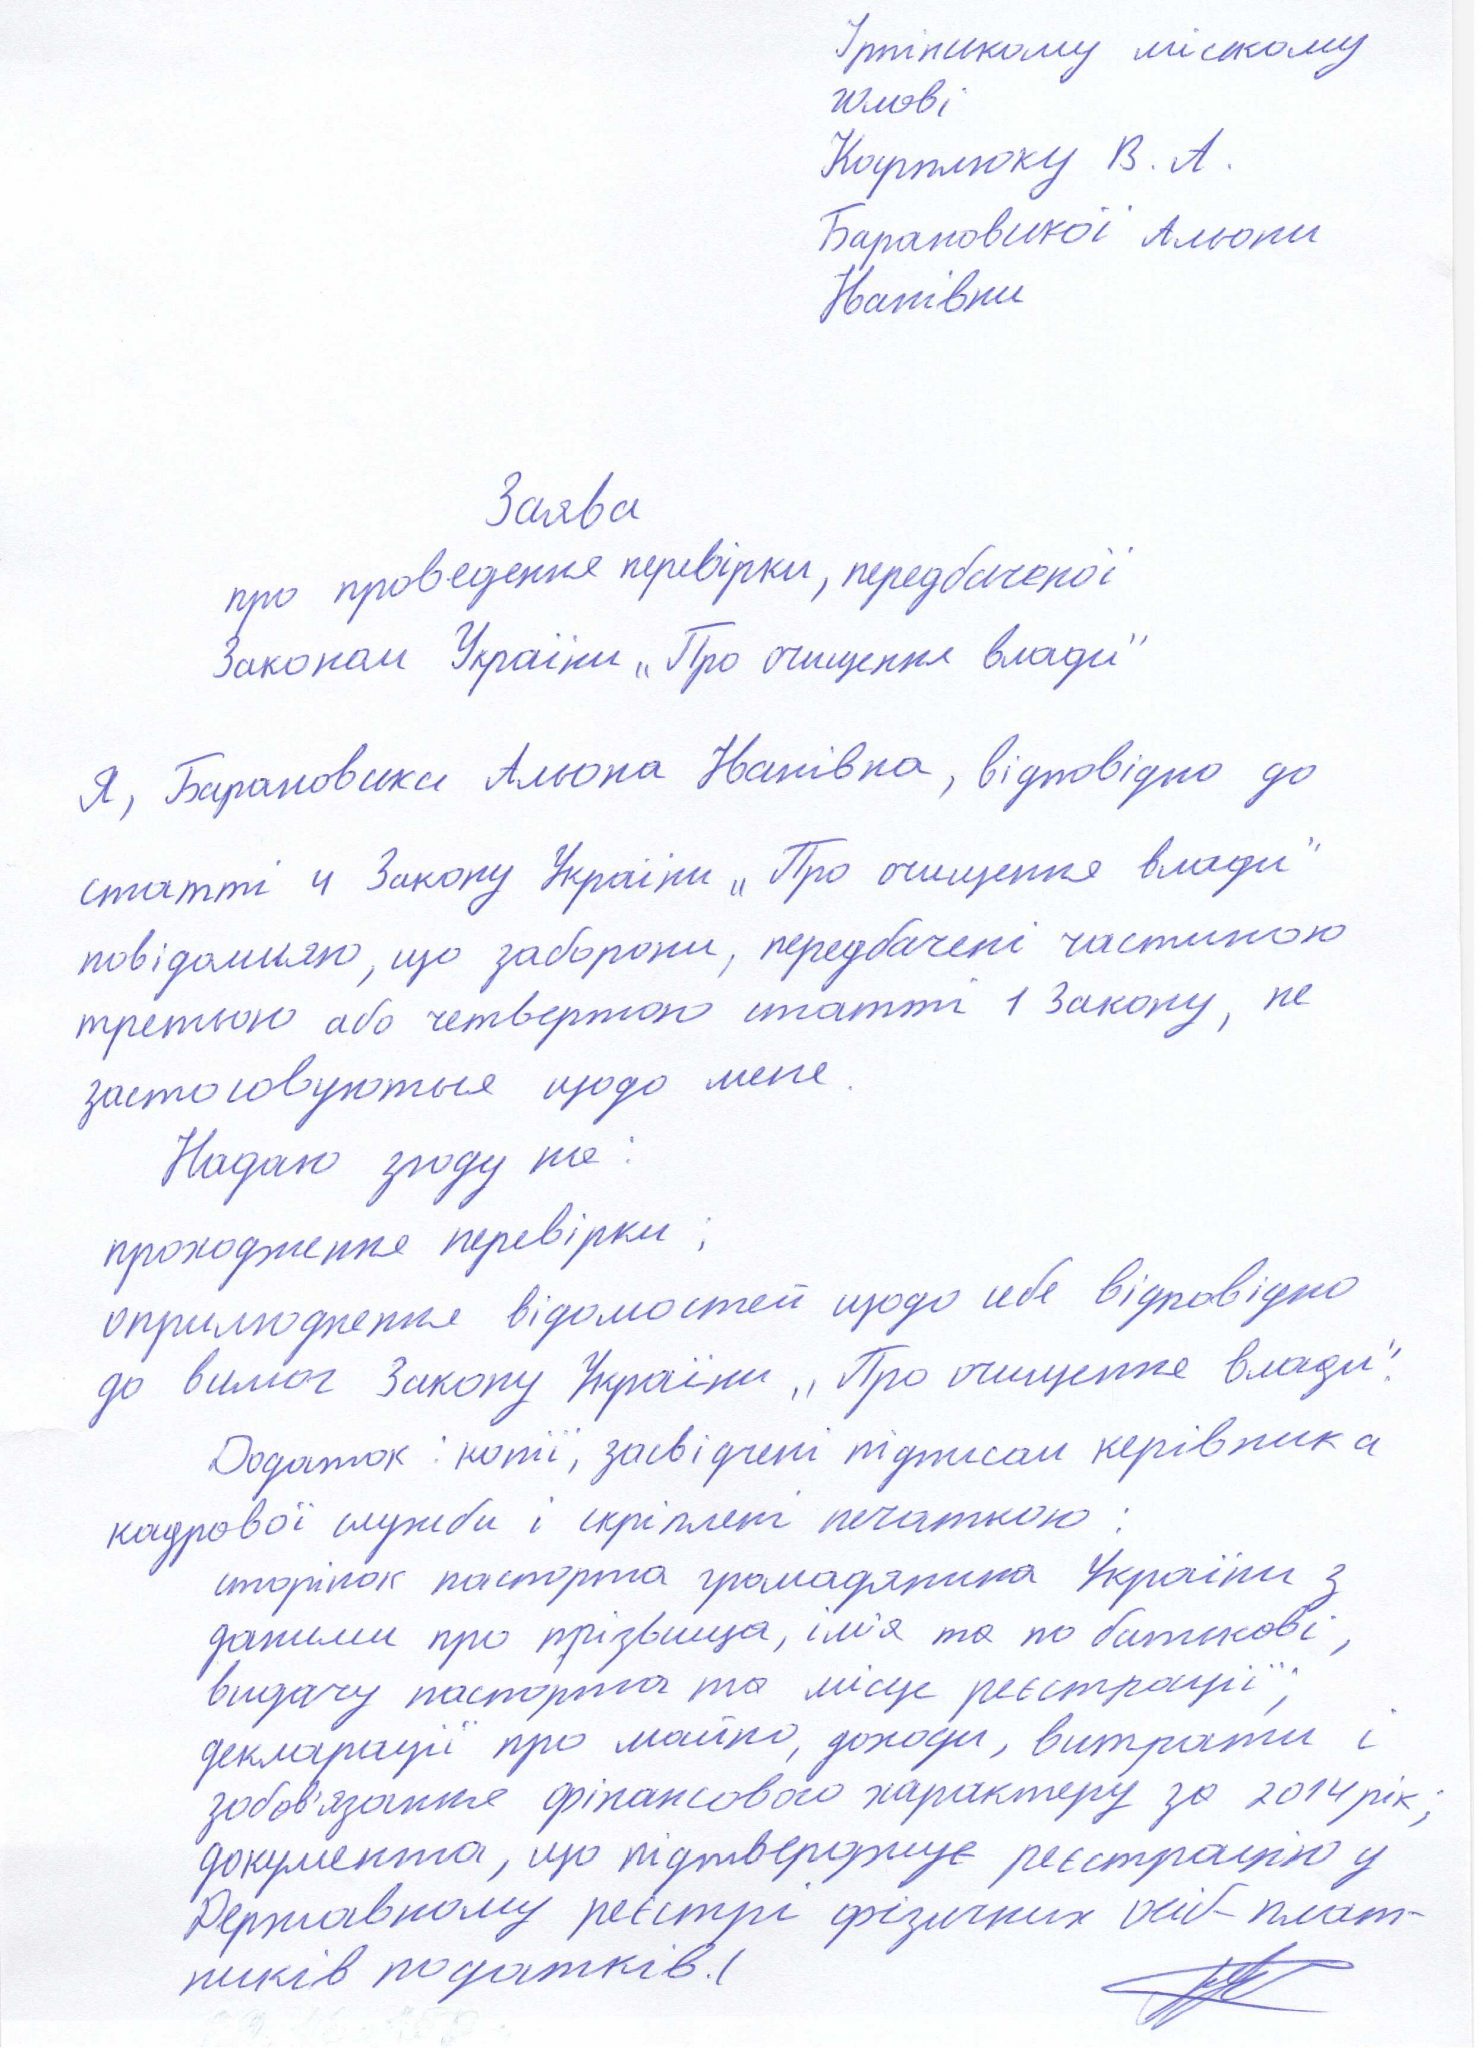 Ірпінському міському
голові
Карплюку В. А.
Барановської Альони
Іванівни
Заява
про проведення перевірки, передбаченої
Законом України „Про очищення влади"
Я, Барановська Альона Іванівна, відповідно до
статті 4 Закону України „Про очищення влади"
повідомляю, що заборони, передбачені частиною
третьою або четвертою статті 1 Закону, не
застосовуються щодо мене.
Надаю згоду на:
проходження перевірки;
оприлюднення відомостей щодо себе відповідно
до вимог Закону України „Про очищення влади".
Додаток: копії, засвідчені підписом керівника
кадрової служби і скріплені печаткою:
сторінок паспорта громадянина України з
даними про прізвища, ім'я та по батькові,
видачу паспорта та місце реєстрації;
декларації про майно, доходи, витрати і
зобов'язання фінансового характеру за 2014 рік;
документа, що підтверджує реєстрацію у
Державному реєстрі фізичних осіб-плат-
ників податків.